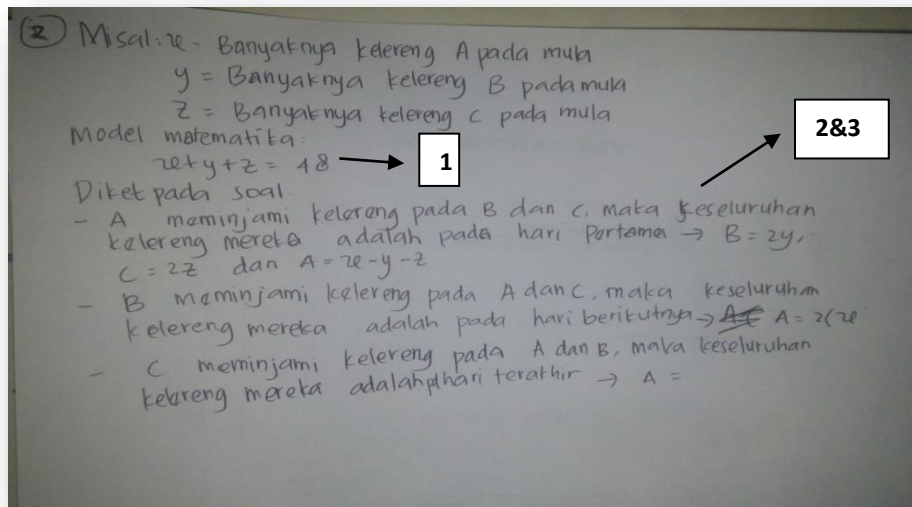 2 Misal: x = Banyaknya kelereng A pada mula
y = Banyaknya kelereng B pada mula
z = Banyaknya kelereng C pada mula
Model matematika:
x + y + z = 48 1
2&3
Diket pada soal
- A meminjami kelereng pada B dan C. maka keseluruhan
kelereng mereka adalah pada hari pertama → B = 2y,
C = 2z dan A = x - y - z
- B meminjami kelereng pada A dan C. maka keseluruhan
kelereng mereka adalah pada hari berikutnya → A = 2(x
- C meminjami kelereng pada A dan B, maka keseluruhan
kelereng mereka adalah hari terakhir → A =